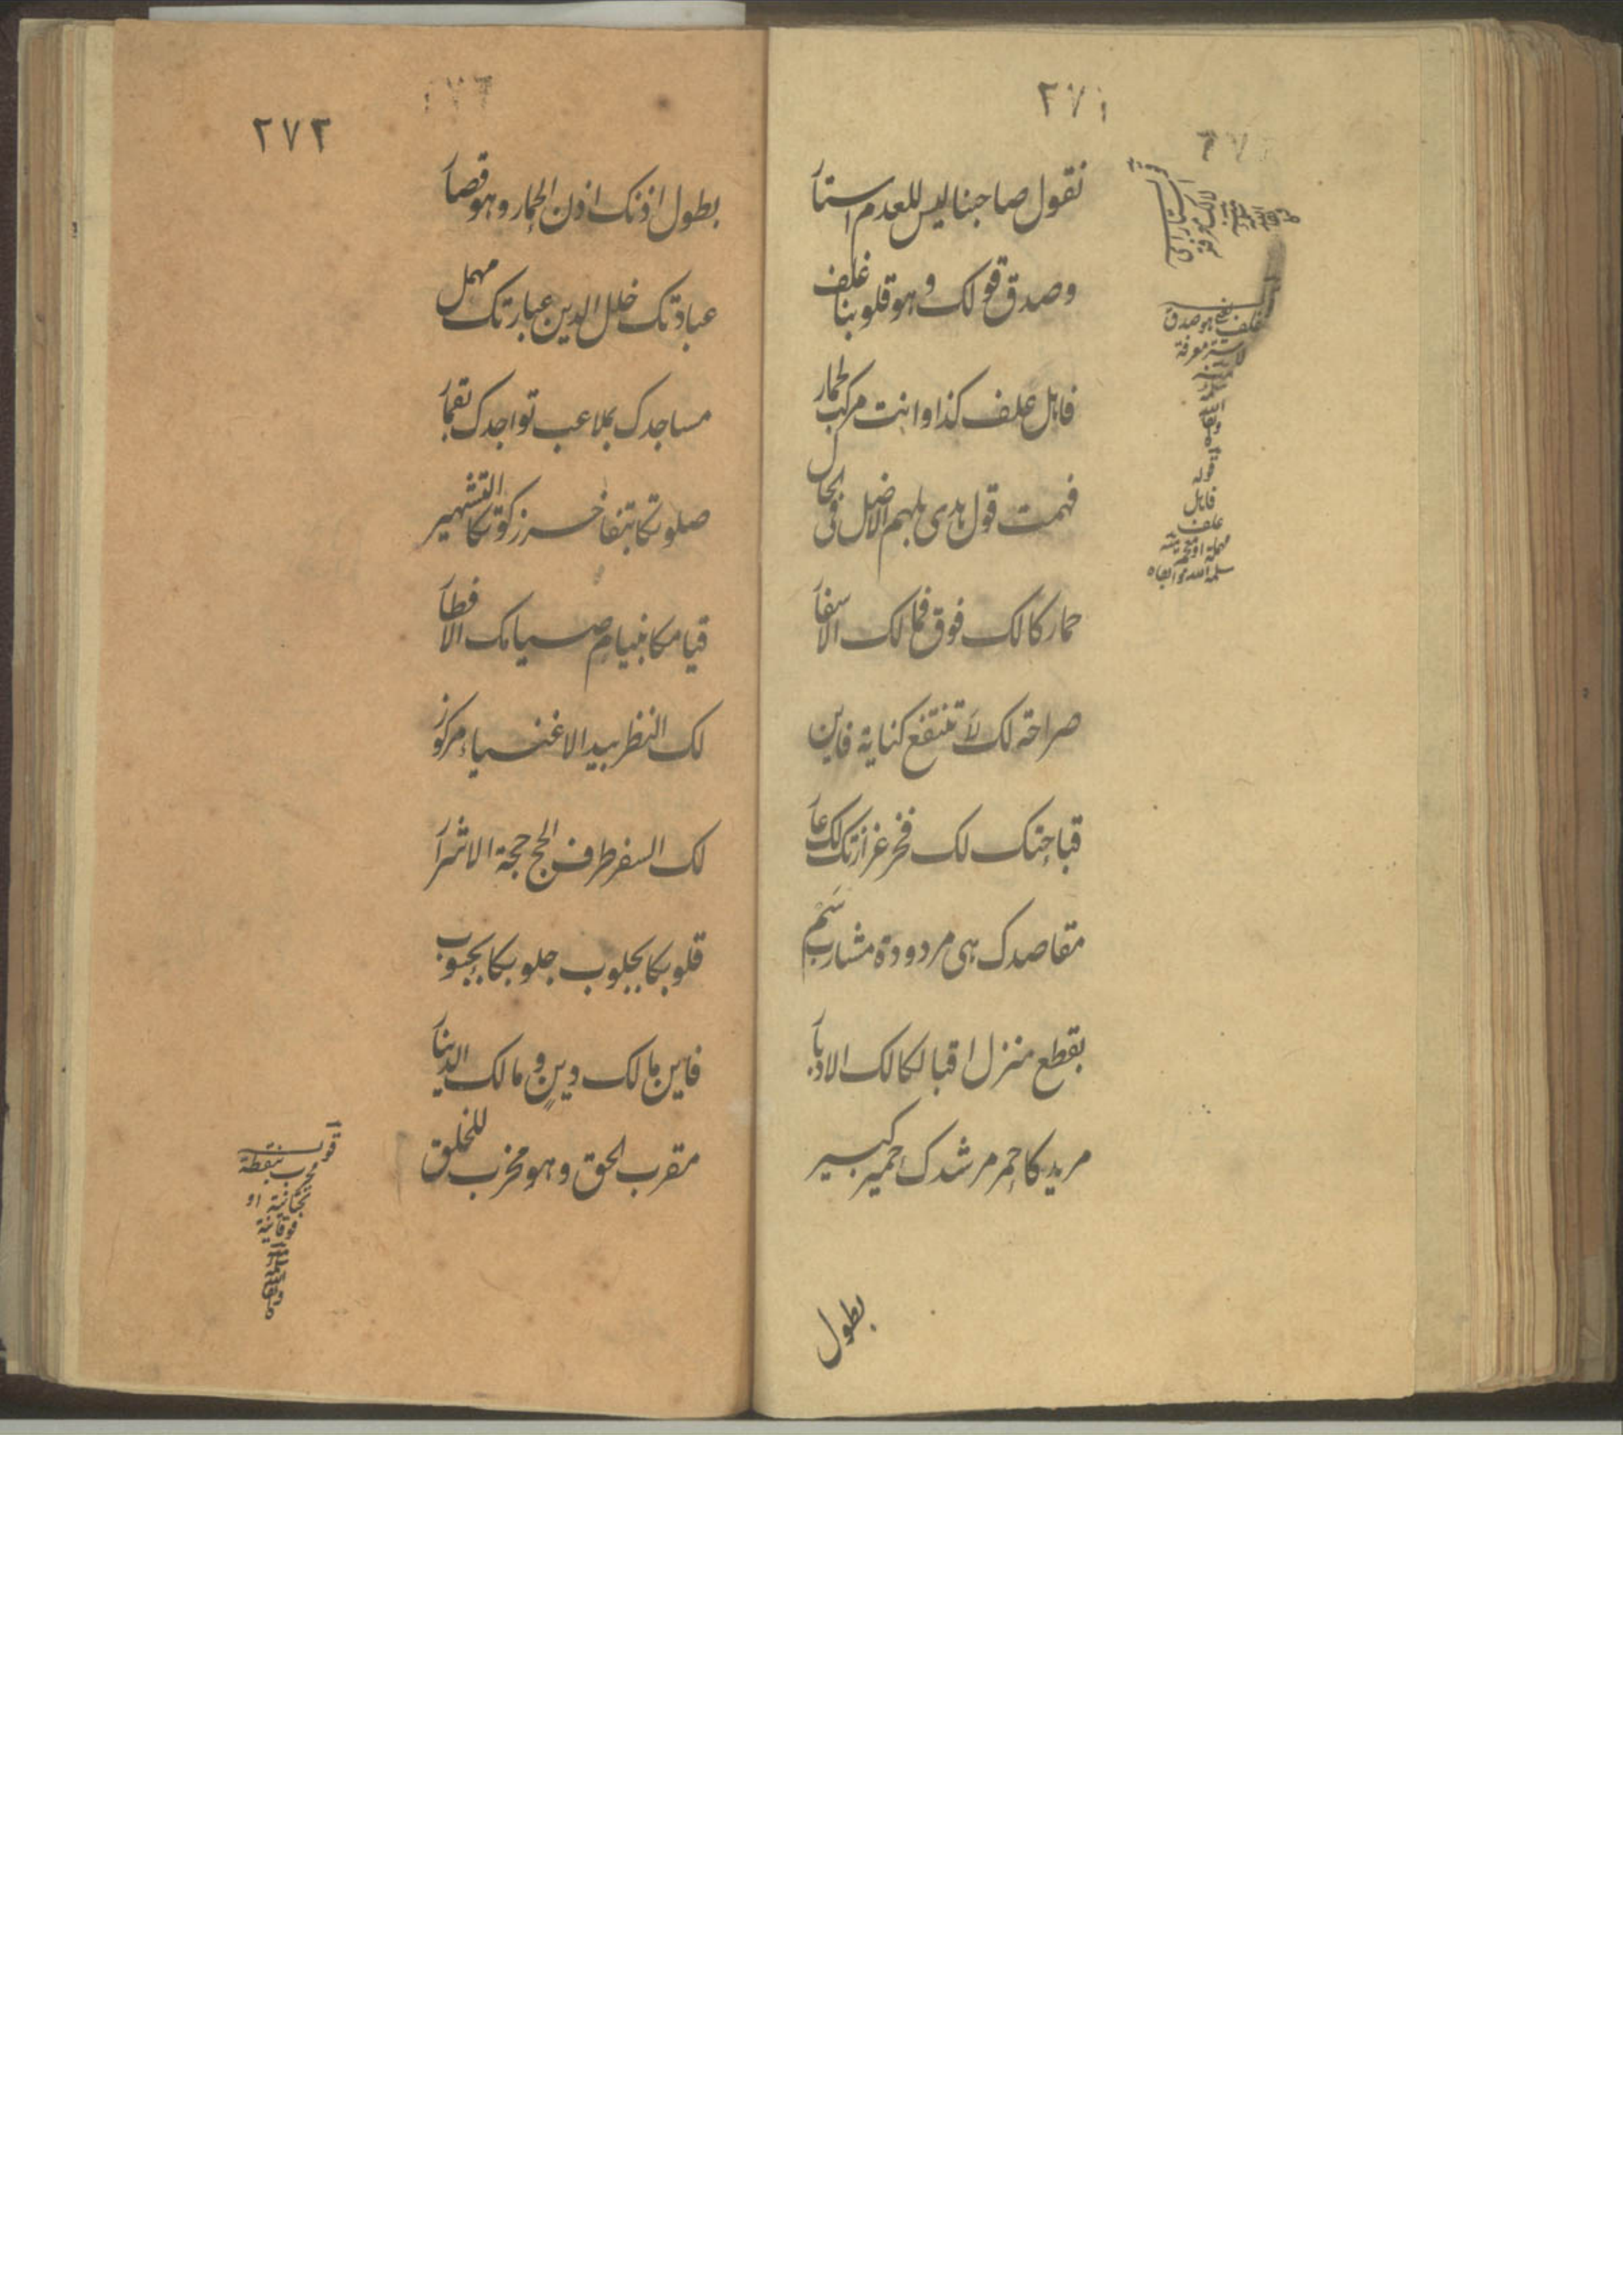 ٢٧١
نقول صاحبنا ليس للعدم استار
وصدق قولك وهو قلوبنا غلف
فاہل علف كذا وانت مركب لحمار
فہمت قول ہدى بلہم الاضل فی الحال
حمار كالك فوق فمالك الاسفار
صراحة لك لا تنتفع كناية فاين
قباحتك لك فخر غرازتك لك عار
مقاصدك ہی مردودة مشارب سم
بقطع منزل اقبالكا لك الادبار
مريدكا حمر مرشدك حمير كبير
بطول
قوله
فاہل
علف
مہملة او معجمة
سلمہ الله وابقاه
٢٧٢
بطول اذنك اذن الحمار وہو قصار
عبادتك خلل الدين عبارتك مہمل
مساجدك بملاعب تواجدك نقمار
صلوتكا بتفاخر زكوتكا التشہير
قيامكا بنيام صيامك الافطار
لك النظر بيد الاغنياء مركوز
لك السفر طرف الحج حجة الاشرار
قلوبكا بجلوب جلوبكا بجيوب
فاين مالك دين ومالك الدينار
مقرب الحق وہو مخرب للخلق
قوله
مخرب بنقطة
تحتانية او
فوقانية